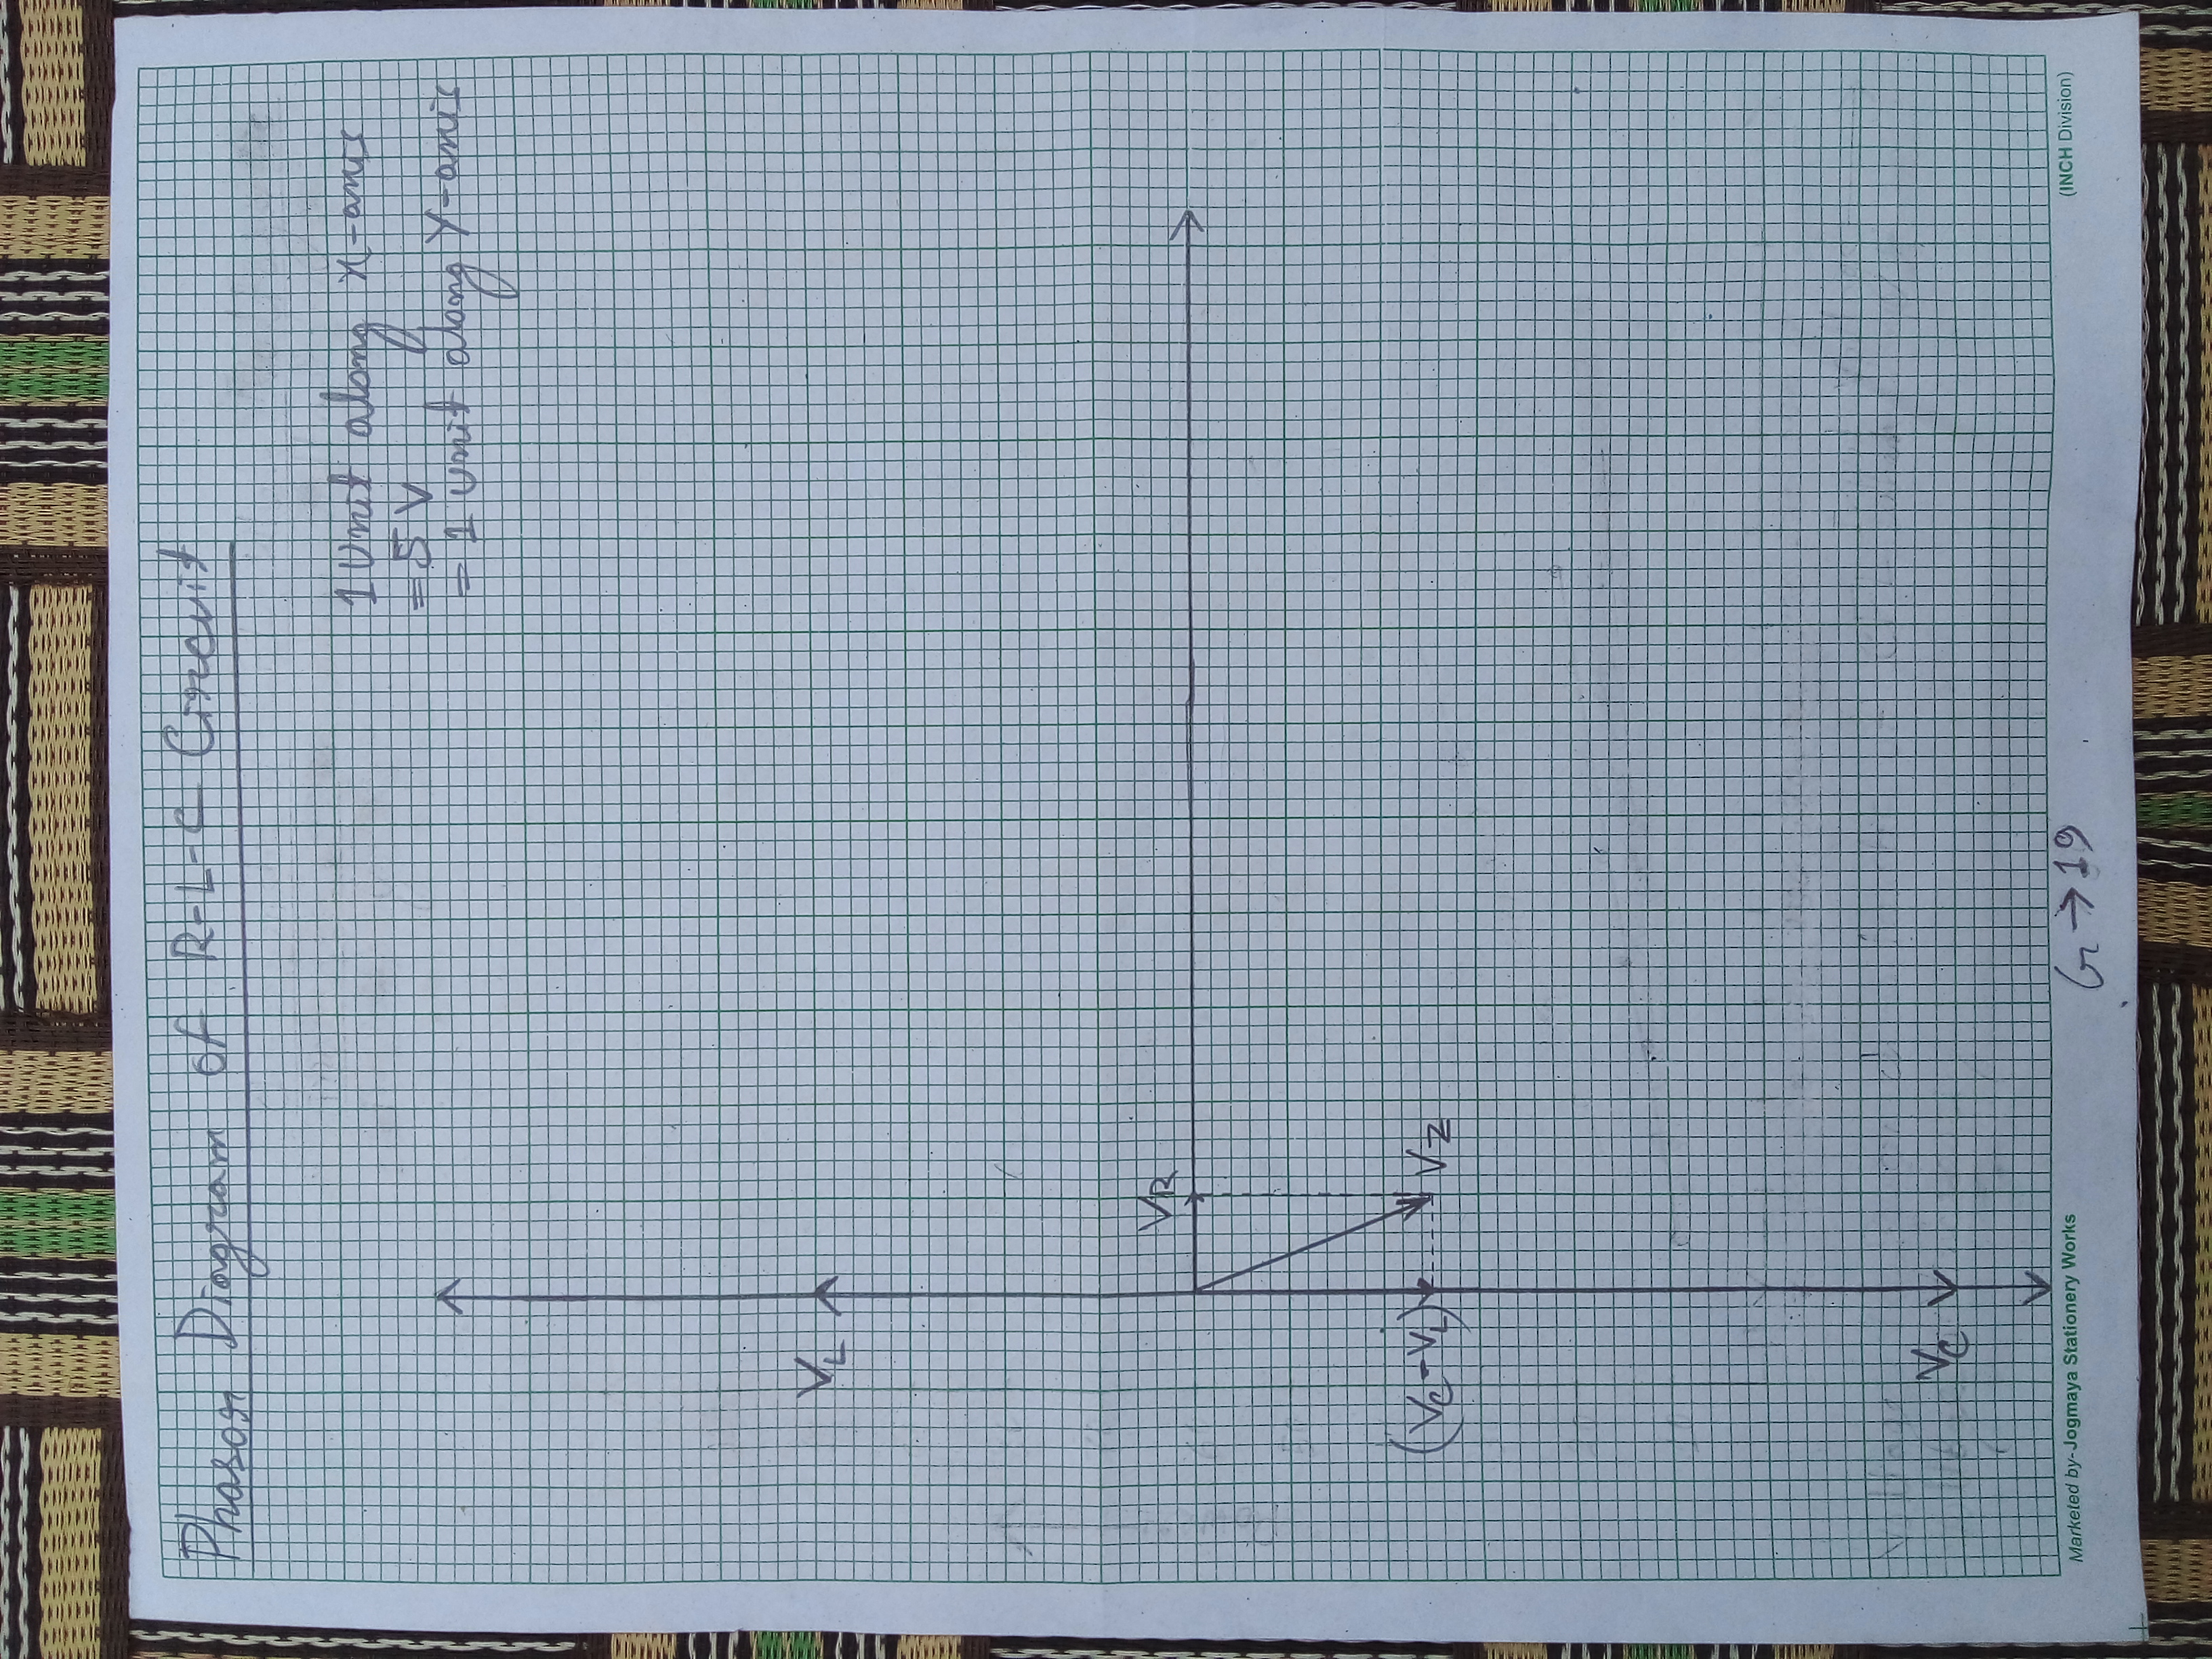 Phasor Diagram of R-L-C Circuit
1 Unit along x-axis
= 5 V
= 1 unit along Y-axis
VL
VR
(VC-VL)
VZ
VC
Marketed by-Jogmaya Stationery Works
(INCH Division)
G→19